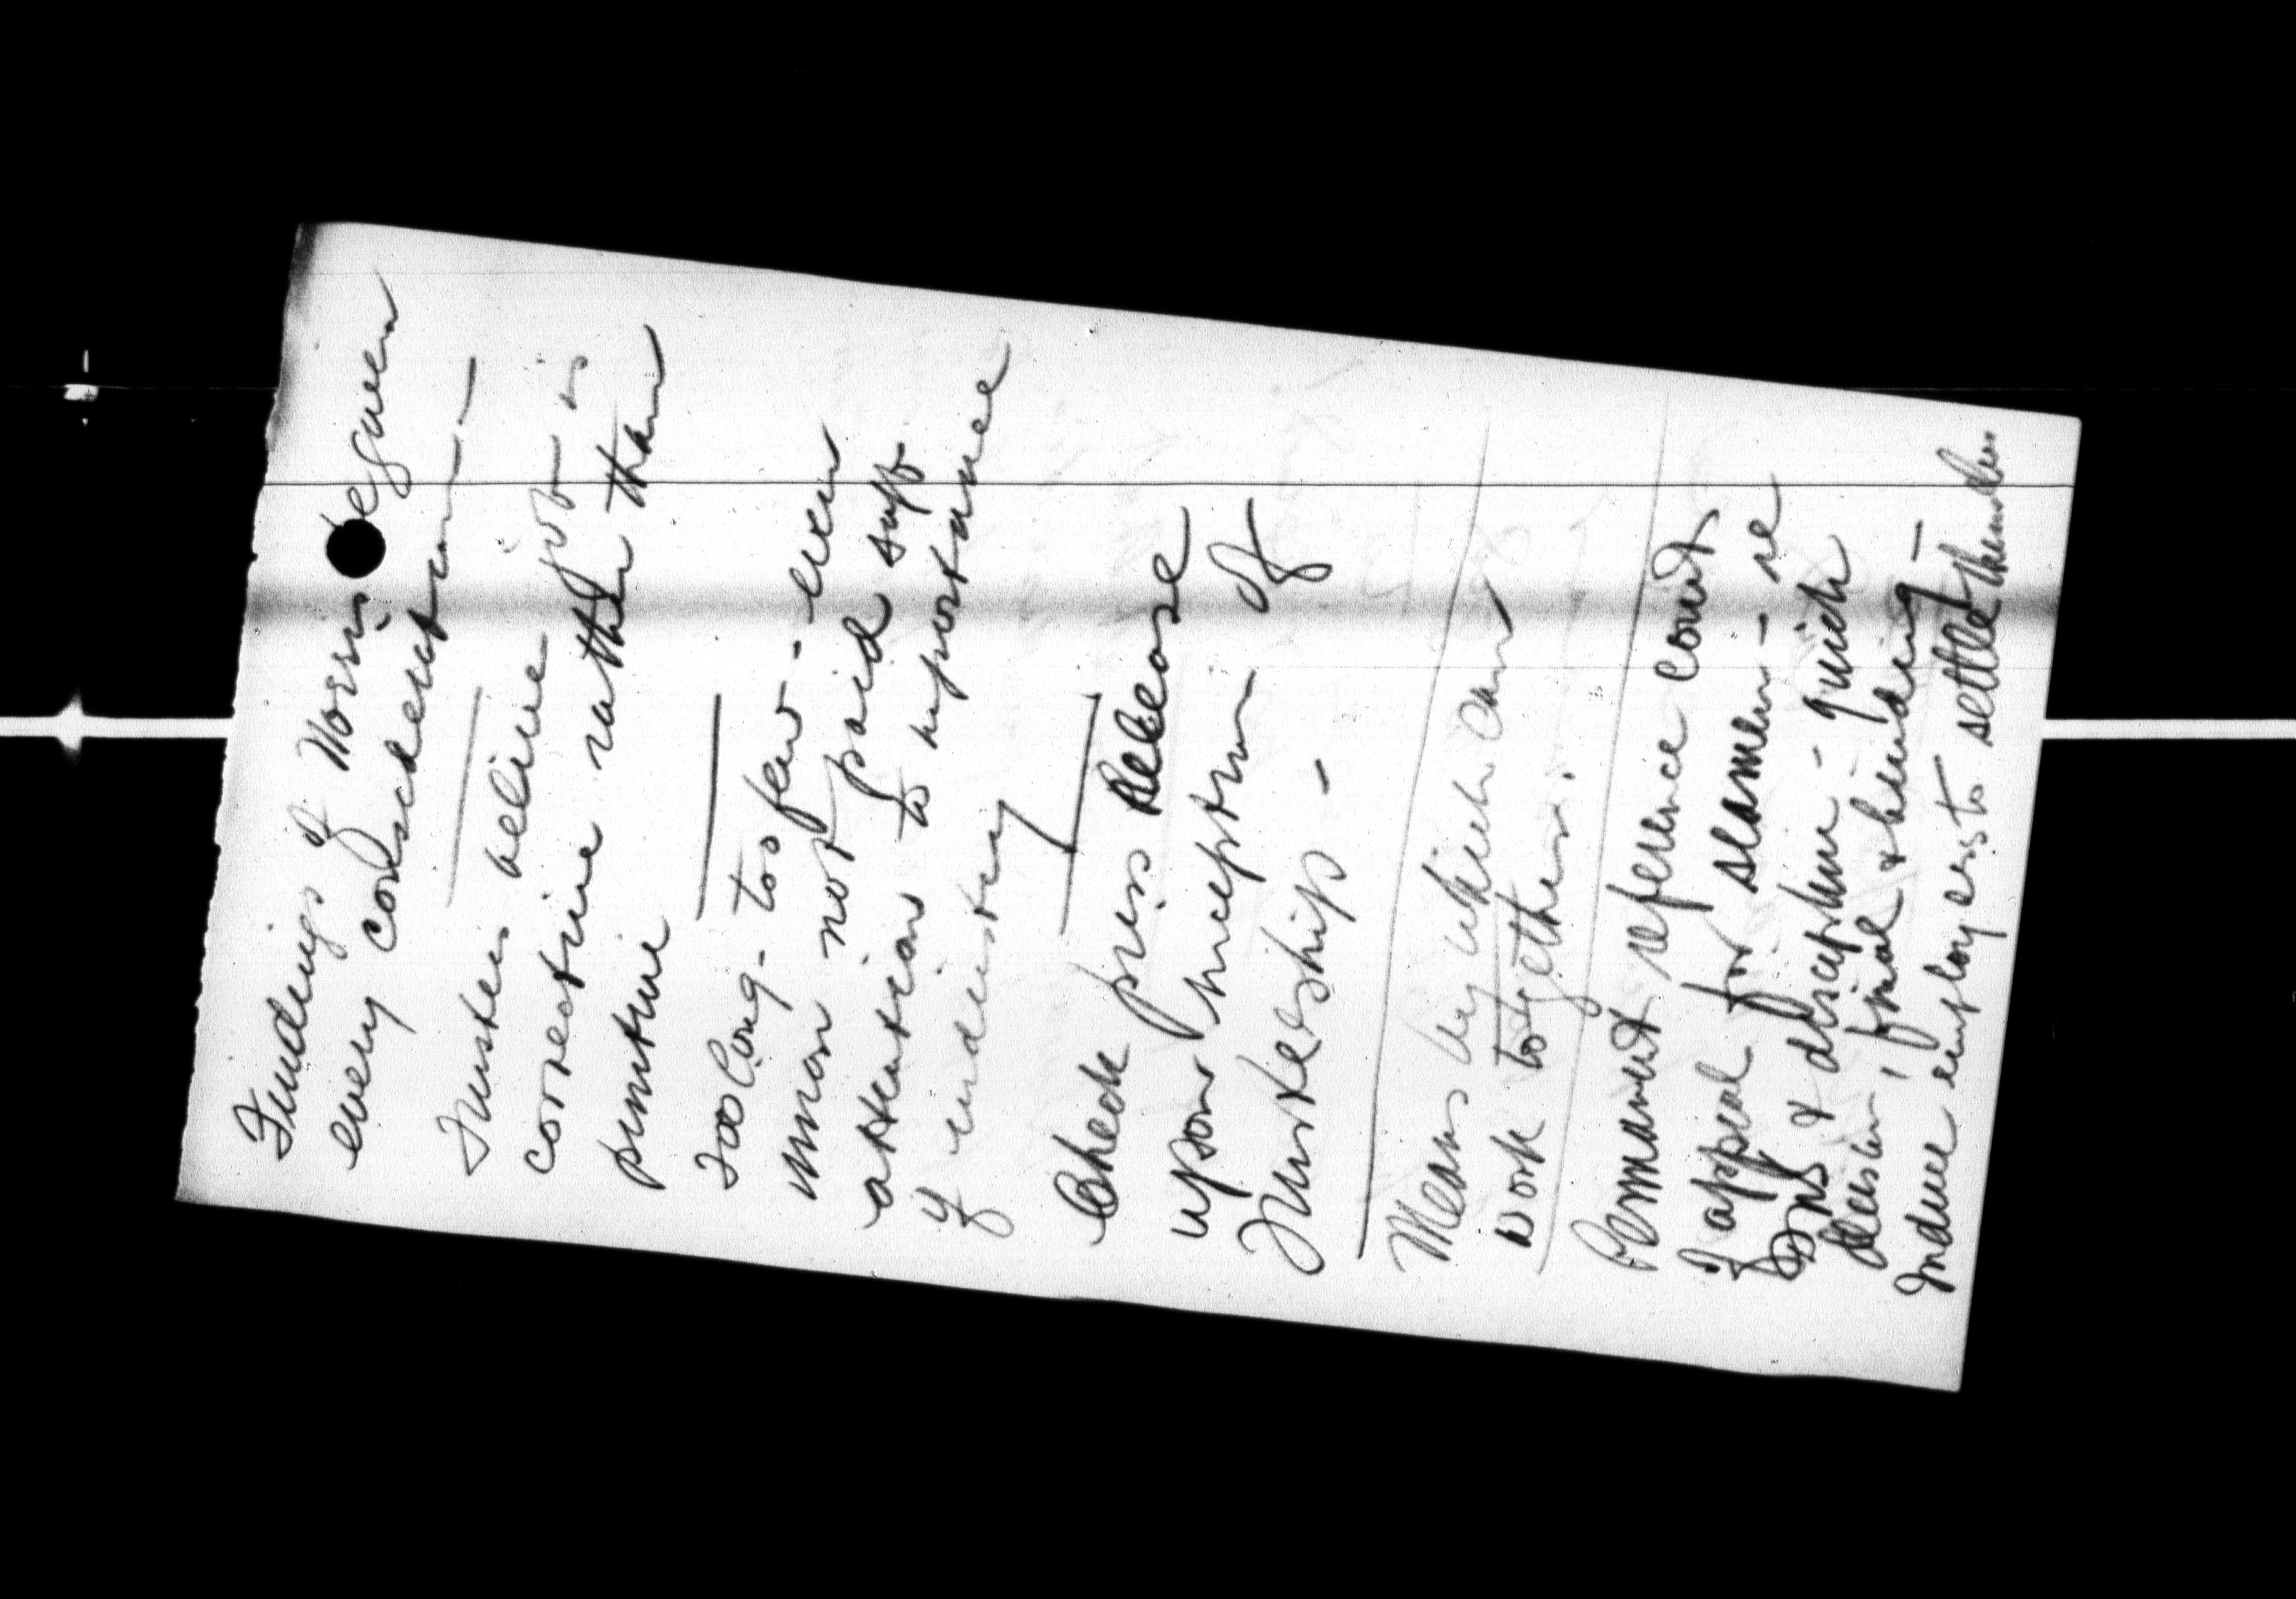 Findings of Norris given
every consideration —
Trustees believe job is
corrective rather than
punitive
Too long - too few - even
union not paid suff
attention to importance
of industry
Check press release
upon inception of
Trusteeship -
Means by which can
work together.
Permanent reference court
of appeal for seamen - re
& discipline - quick
final & binding -
Induce employers to settle